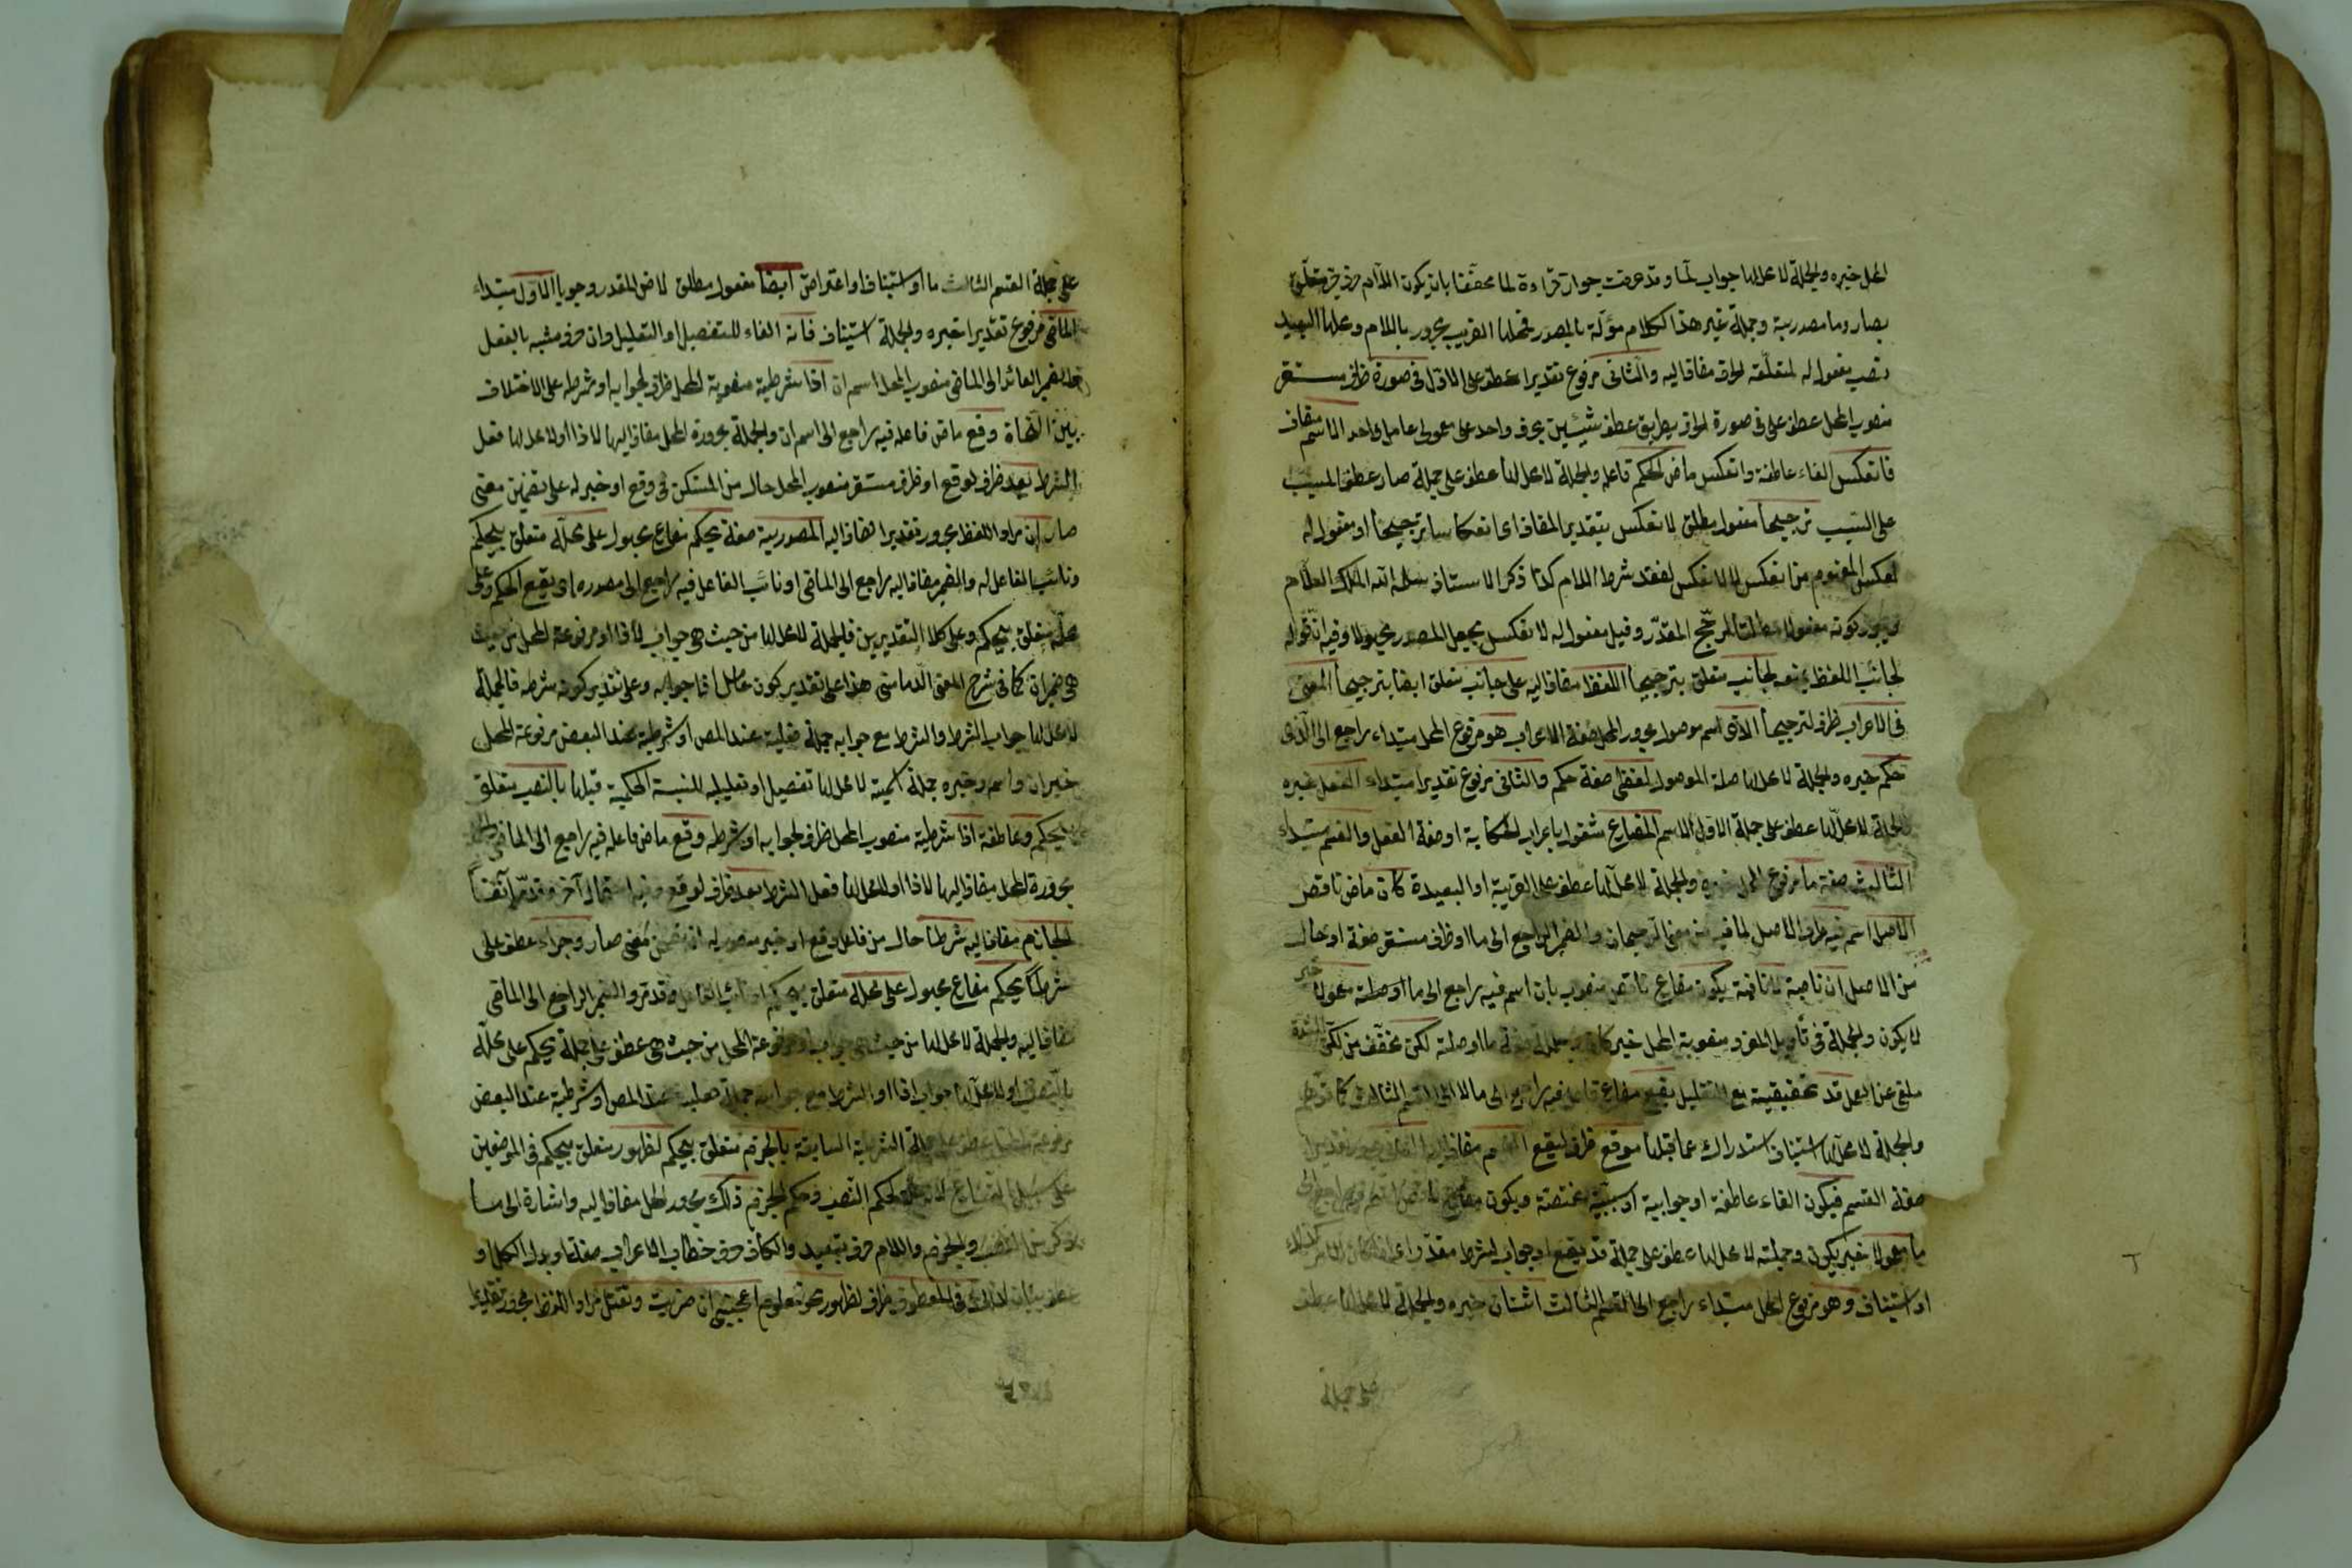 المحل خبره والجملة لا محل لها جواب لما وقد عرفت جواز قراءة لما مخففا بان يكون اللام حرف جر متعلق
بصار وما مصدرية وجملة غير هذا الكلام مؤلة بالمصدر فمحلها القريب مجرور باللام ومحلها البعيد
نصب مفعول له لمتعلقه لواقع مضاف اليه والثاني مرفوع تقديرا عطف على الاول في صورة ظرف مستقر
منصوب المحل عطف على في صورة لواقع بطريق عطف شيئين بحرف واحد على معمولي عامل واحد الاسم مضاف
فانعكس الفاء عاطفة وانعكس ماض الحكم فاعله والجملة لا محل لها عطف على جملة صار عطف المسبب
على السبب ترجيحا مفعول مطلق لانعكس بتقدير المضاف اى انعكاسا ترجيحا او مفعول له
لعكس المفهوم من انعكس لا لانعكس لفقد شرط اللام كذا ذكر الاستاذ سلمه الله الملك العلام
كونه مفعولا مطلقا لرجح المقدر وقيل مفعول له لانعكس بجعل المصدر مجهولا وفيه انه قوله
لجانب اللفظ لجانب متعلق بترجيحا اللفظ مضاف اليه على جانب متعلق ايضا بترجيحا المعنى
في الاعراب ظرف لترجيحا الذى اسم موصول مجرور المحل صفة الاعراب هو مرفوع المحل مبتداء راجع الى الذى
حكم خبره والجملة لا محل لها صلة الموصول لفظى صفة حكم والثاني مرفوع تقديرا مبتداء الفعل خبره
والجملة لا محل لها عطف على جملة الاول الاسم المضارع مشغول باعراب الحكاية او صفة الفعل والقسم مبتداء
الثالث صفة ما مرفوع المحل خبره والجملة لا محل لها عطف على القريبة او البعيدة كان ماض ناقص
الاصل اسم فيه ظرف الاصل لما فيه من معنى الرجحان والضمير الراجع الى ما او ظرف مستقر صفة او حال
من الاصل ان ناصبة لا نافية يكون مضارع ناقص منصوب بان اسم فيه راجع الى ما او صلة معمولا خبر
لا يكون والجملة في تأويل المفرد منصوبة المحل خبر كان وجملة صفة ما او صلته لكن مخفف من لكن المشددة
ملغى عن العمل قد تحقيقية مع التقليل يقع مضارع فاعله فيه راجع الى ما لا الى القسم الثالث كما توهم
والجملة لا محل لها استيناف استدراك عما قبلها موقع ظرف ليقع القسم مضاف اليه
صفة القسم فيكون الفاء عاطفة او جوابية او سببية مختصة ويكون مضارع ناقص اسم فيه راجع الى
ما معمولا خبر يكون وجملته لا محل لها عطف على جملة قد يقع او جواب لشرط مقدر
او استيناف وهو مرفوع المحل مبتداء راجع الى القسم الثالث اثنان خبره والجملة لا محل لها عطف
على جملة
على جملة القسم الثالث ما او استيناف او اعتراض ايضا مفعول مطلق لاض المقدر وجوبا الاول مبتداء
الماضى مرفوع تقديرا خبره والجملة استيناف فانه الفاء للتفصيل او التعليل وان حرف مشبه بالفعل
الضمير العائد الى الماضى منصوب المحل اسم ان اذا شرطية منصوبة المحل ظرف لجوابه او شرطه على الاختلاف
بين النحاة وقع ماض فاعله فيه راجع الى اسم ان والجملة مجرورة المحل مضاف اليها لاذا او لا محل لها فعل
الشرط بعد ظرف لوقع او ظرف مستقر منصوب المحل حال من المستكن في وقع او خبر له على تضمين معنى
صار ان مراد اللفظ مجرور تقديرا مضاف اليه المصدرية صفة يحكم مضارع مجهول على محله متعلق بيحكم
ونائب الفاعل له والضمير مضاف اليه راجع الى الماضى او نائب الفاعل فيه راجع الى مصدره اى يقع الحكم وعلى
محله متعلق بيحكم وعلى كلا التقديرين فالجملة لا محل لها من حيث هي جواب لاذا او مرفوعة المحل من حيث
هي خبر ان كما في شرح المغنى للدماميني هذا على تقدير كون عامل اذا جوابه وعلى تقدير كونه شرطه فالجملة
لا محل لها جواب الشرط والشرط مع جوابه جملة فعلية عند المص او شرطية عند البعض مرفوعة المحل
خبر ان واسمه وخبره جملة اسمية لا محل لها تفصيل او تعليل للنسبة الحكمية قبلها بالنصب متعلق
بيحكم وعاطفة اذا شرطية منصوب المحل ظرف لجوابه او شرطه وقع ماض فاعله فيه راجع الى الماضى والجملة
مجرورة المحل مضاف اليها لاذا او لا محل لها فعل الشرط بعد ظرف لوقع وفيه احتمال آخر وقد مر آنفا
الجازم مضاف اليه شرطا حال من فاعل وقع او خبر منصوب له ان تضمن معنى صار وجزاء عطف على
شرطا يحكم مضارع مجهول على محله متعلق بيحكم او نائب الفاعل وقد مر والضمير الراجع الى الماضى
مضاف اليه والجملة لا محل لها من حيث هي جواب او مرفوعة المحل من حيث هي عطف على جملة يحكم على محله
بالنصب او لا محل لها جواب اذا او الشرط مع جوابه جملة فعلية عند المص او شرطية عند البعض
مرفوعة عطف على جملة الشرطية السابقة بالجزم متعلق بيحكم لظهور متعلق بيحكم في الموضعين
على سبيل التنازع لحكم النصب وحكم الجزم ذلك مجرور المحل مضاف اليه واشارة الى ما
ذكر من النصب والجزم واللام حرف تبعيد والكاف حرف خطاب الاعراب صفة او بدل الكل او
عطف بيان لذلك في المعطوف ظرف لظهور نحو معلوم اعجبنى ان ضربت وتقتل مراد اللفظ مجرور تقديرا